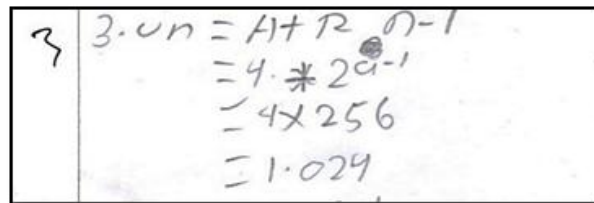 3 3. Un = A + R n-1
= 4 . * 2 9-1
= 4 x 256
= 1.024